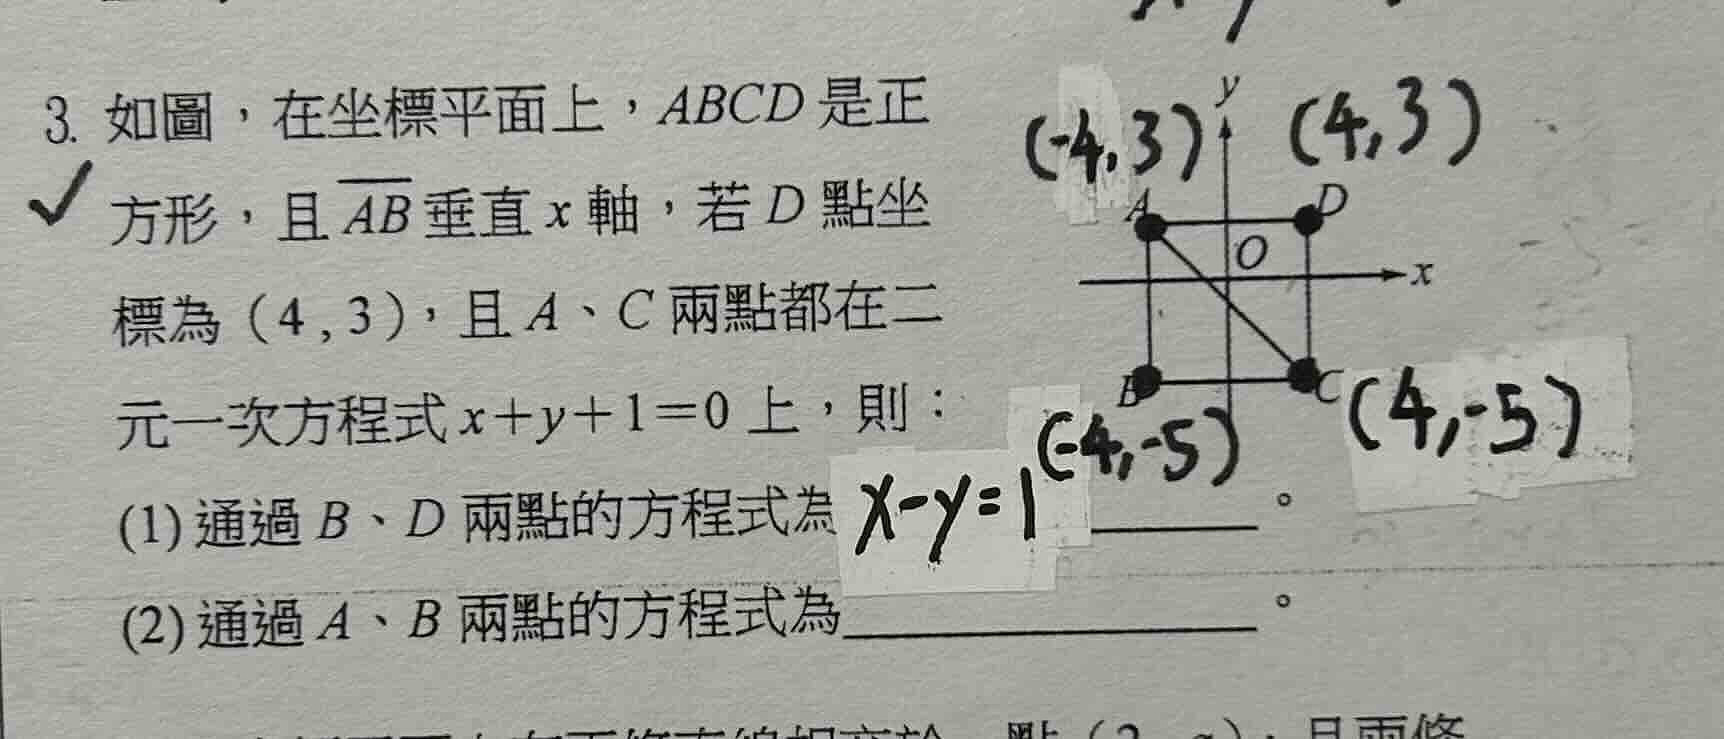 3. 如圖，在坐標平面上，ABCD 是正
方形，且 AB 垂直 x 軸，若 D 點坐
標為（4 , 3），且 A、C 兩點都在二
元一次方程式 x+y+1=0 上，則：
(1) 通過 B、D 兩點的方程式為 x-y=1 。
(2) 通過 A、B 兩點的方程式為 。
(-4,3)
y
(4,3)
A
D
O
x
B
C
(-4,-5)
(4,-5)